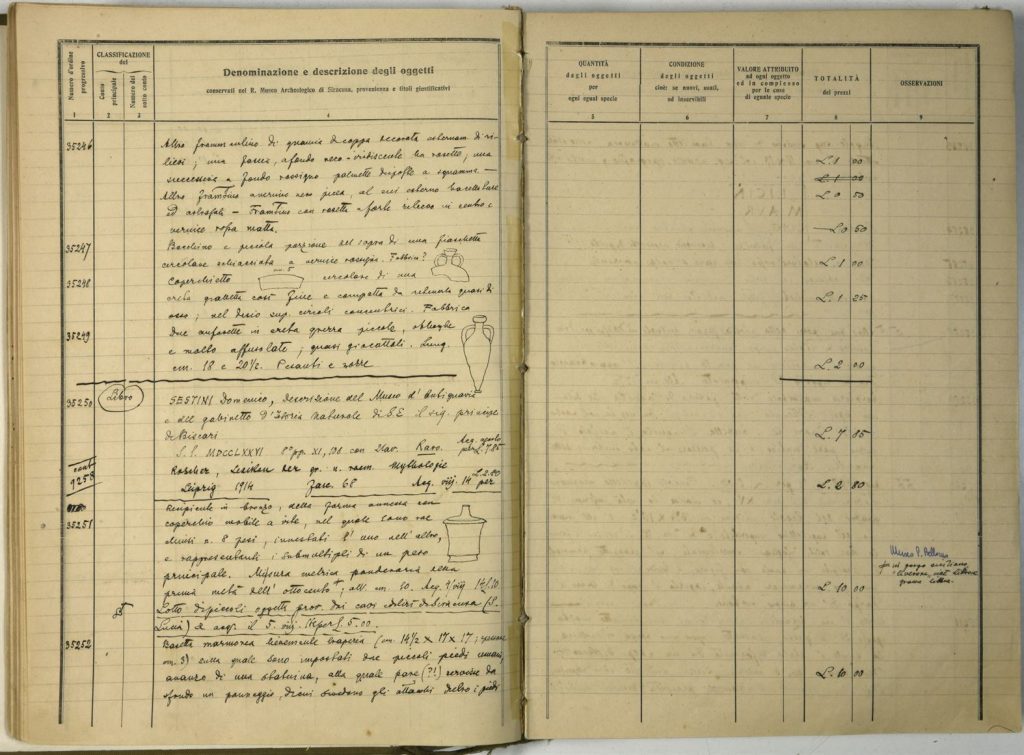 Numero d'ordine progressivo
CLASSIFICAZIONE del
Conto principale
Numero del sotto conto
Denominazione e descrizione degli oggetti
conservati nel R. Museo Archeologico di Siracusa, provenienza e titoli giustificativi
1 2 3 4
35246 Altro frammentino di di coppa decorata esternam. di ri-
lievi; una fascia, a fondo nero-iridiscente ha rosette; una
successiva a fondo rossigno palmette disposte a squamme —
Altro frammtino a vernice nera, al cui esterno baccellature
ed astrofali — Frammtino con rosetta a forte rilievo in centro e
vernice rossa matta.
35247 Bocchino e piccola porzione del sopra di una fiaschetta
circolare schiacciata, a vernice rossigna. Fabbrica?
35248 Coperchietto circolare di una
creta così fine e compatta da sembrare quasi di
osso; nel disco sup. circoli concentrici. Fabbrica
35249 Due anforette in creta piccole, oblunghe
e molto affusolate; quasi giocattoli. Lung.
cm. 18 e 20½. Pesanti e
35250 Libro SESTINI Domenico, Descrizione del Museo d'Antiquaria
e del gabinetto d'Istoria Naturale di S.E. il sig. principe
di Biscari
MDCCLXXVI 8° pp. XI, con 2 tav. Raro. Acq. agosto per L. 7.85
cont 9258 Roscher, Lexikon der gr. u. röm. Mythologie L. 2.80
Leipzig 1914 Fasc. 68 Acq. viij. 14 per
35251 Recipiente in bronzo, della forma annessa con
coperchio mobile a vite, nel quale sono rac
chiusi n. 8 pesi, innestati l'uno nell'altro,
e rappresentanti i submultipli di un peso
principale. Misura metrica ponderaria della
prima metà dell'ottocento; alt. cm. 10. Acq. 4/viij 14 L. 10
Lotto di piccoli oggetti prov. dai cavi di Siracusa (S.
Lucia) e acq. il 5. viij. 14 per L. 5.00.
35252 Basetta marmorea lievemente trapezia (cm. 14½ × 17 × 17; spessore
cm. 3) sulla quale sono impostati due piccoli piedi umani,
avanzo di una statuina, alla quale pare (?!) servisse da
sfondo un panneggio, di cui si vedono gli attacchi dietro i piedi
QUANTITÀ degli oggetti per ogni egual specie
CONDIZIONE degli oggetti cioè: se nuovi, usati, od inservibili
VALORE ATTRIBUITO ad ogni oggetto ed in complesso per le cose di eguale specie
TOTALITÀ dei prezzi
OSSERVAZIONI
5 6 7 8 9
L. 1 00
L. 1 00
L. 0 50
L. 0 50
L. 1 00
L. 1 25
L. 2 00
L. 7 85
L. 2 80
Museo P.
L. 10 00
L. 10 00